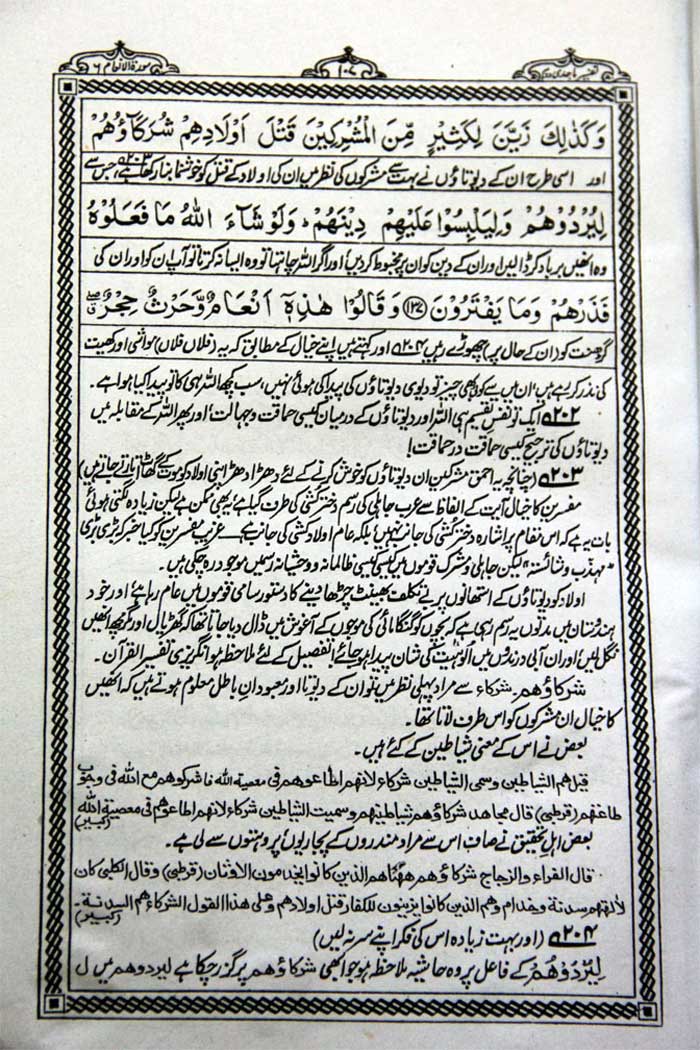 تفسیر ماجدی
۱۰۷
سورۃ الانعام ۶
وَكَذٰلِكَ زَيَّنَ لِكَثِيْرٍ مِّنَ الْمُشْرِكِيْنَ قَتْلَ اَوْلَادِهِمْ شُرَكَآؤُهُمْ
اور اسی طرح ان کے دیوتاؤں نے بہت سے مشرکوں کی نظر میں ان کی اولاد کے قتل کو خوشنما بنا رکھا ہے ۲۰۳ جس سے
لِيُرْدُوْهُمْ وَلِيَلْبِسُوْا عَلَيْهِمْ دِيْنَهُمْ ۚ وَلَوْ شَآءَ اللّٰهُ مَا فَعَلُوْهُ
وہ انھیں برباد کر ڈالیں اور ان کے دین کو ان پر مخبوط کر دیں اور اگر اللہ چاہتا تو وہ ایسا نہ کرتے تو آپ ان کو اور ان کی
فَذَرْهُمْ وَمَا يَفْتَرُوْنَ ﴿۱۳۷﴾ وَقَالُوْا هٰذِهٖٓ اَنْعَامٌ وَّحَرْثٌ حِجْرٌ
گڑھنت کو (ان کے حال پر) چھوڑے رہیں ۲۰۴ اور کہتے ہیں اپنے خیال کے مطابق کہ یہ (فلاں فلاں) مواشی اور کھیت
کی نذر کر رہے ہیں، ان میں سے کوئی بھی چیز تو دیوی دیوتاؤں کی پیدا کی ہوئی نہیں، سب کچھ اللہ ہی کا تو پیدا کیا ہوا ہے۔
۲۰۲ ایک تو نفس تقسیم ہی اللہ اور دیوتاؤں کے درمیان کیسی حماقت و جہالت، اور پھر اللہ کے مقابلہ میں
دیوتاؤں کی ترجیح کیسی حماقت در حماقت!
۲۰۳ (چنانچہ یہ احمق مشرکین ان دیوتاؤں کو خوش کرنے کے لئے دھڑا دھڑ اپنی اولاد کو موت کے گھاٹ اتارتے جاتے ہیں)
مفسرین کا خیال آیت کے الفاظ سے عرب جاہلی کی رسم دختر کشی کی طرف گیا ہے، یہ بھی ممکن ہے لیکن زیادہ لگتی ہوئی
بات یہ ہے کہ اس مقام پر اشارہ دختر کشی کی جانب نہیں، بلکہ عام اولاد کشی کی جانب ہے۔ غریب مفسرین کو کیا خبر کہ بڑی بڑی
"مہذب و شائستہ" لیکن جاہلی و مشرک قوموں میں کیسی کیسی ظالمانہ و وحشیانہ رسمیں موجود رہ چکی ہیں۔
اولاد کو دیوتاؤں کے استھانوں پر بے تکلف بھینٹ چڑھا دینے کا دستور سامی قوموں میں عام رہا ہے، اور خود
ہندوستان میں مدتوں یہ رسم رہی ہے کہ بچوں کو گنگا مائی کی موجوں کے آغوش میں ڈال دیا جاتا تھا کہ گھڑیال اور مگرمچھ انھیں
نگل لیں، اور ان آبی درندوں میں الوہیت کی شان پیدا ہو جائے، تفصیل کے لئے ملاحظہ ہو انگریزی تفسیر القرآن۔
شرکاؤھم۔ شرکاء سے مراد پہلی نظر میں تو ان کے دیوتا اور معبودان باطل معلوم ہوتے ہیں کہ انھیں
کا خیال ان مشرکوں کو اس طرف لاتا تھا۔
بعض نے اس کے معنی شیاطین کے کئے ہیں۔
قیل ھم الشیاطین وسمی الشیاطین شرکاء لانھم اطاعوھم فی معصیۃ اللہ فاشرکوھم مع اللہ فی وجوب
طاعتھم (قرطبی) قال مجاھد شرکاؤھم شیاطینھم وسمیت الشیاطین شرکاء لانھم اطاعوھم فی معصیۃ اللہ (کبیر)
بعض اہل تحقیق نے صاف اس سے مراد مندروں کے پجاریوں، پروہتوں سے لی ہے۔
قال الفراء والزجاج شرکاؤھم ھھنا ھم الذین کانوا یخدمون الاوثان (قرطبی) وقال الکلبی کان
لآلھتھم سدنۃ وخدام وھم الذین کانوا یزینون للکفار قتل اولادھم وعلی ھذا القول الشرکاء ھم السدنۃ۔ (کبیر)
۲۰۴ (اور بہت زیادہ اس کی فکر اپنے سر نہ لیں)
لِیُرْدُوْھُمْ کے فاعل پر وہ حاشیہ ملاحظہ ہو جو ابھی شرکاؤھم پر گزر چکا ہے لیردوھم میں ل